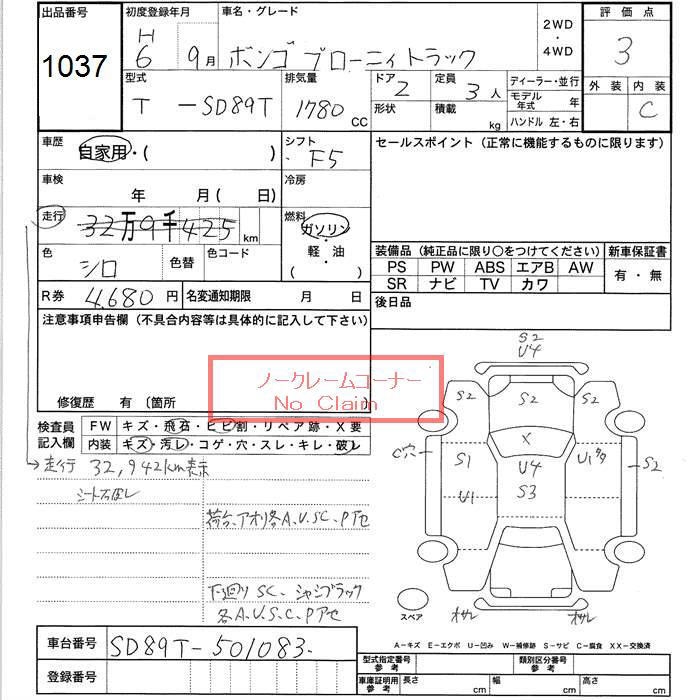 出品番号
1037
初度登録年月
H
6 9月
車名・グレード
ボンゴブローニィトラック
2WD
・
4WD
評価点
3
外装 内装
C
型式
T -SD89T
排気量
1780 CC
ドア 2
形状
定員 3 人
積載 kg
ディーラー・並行
モデル年式 年
ハンドル 左・右
車歴
自家用・( )
シフト
F5
セールスポイント(正常に機能するものに限ります)
車検
年 月( 日)
冷房
走行
32万9千425 km
燃料
ガソリン
・
軽油
( )
色
シロ
色替
色コード
装備品(純正品に限り○をつけてください)
PS PW ABS エアB AW
SR ナビ TV カワ
新車保証書
有・無
R券 4,680 円
名変通知期限 月 日
後日品
注意事項申告欄(不具合内容等は具体的に記入して下さい)
ノークレームコーナー
No Claim
修復歴 有 〔箇所
検査員
記入欄
FW キズ・飛石・ヒビ割・リペア跡・X要
内装 キズ・汚レ・コゲ・穴・スレ・キレ・破レ
→走行 32,942km表示
荷台、アオリ各A.U.SC.Pアセ
下廻りSC、シャシブラック
各A.U.S.C.Pアセ
S2
U4
S2 S2 S2
C穴 S1 X S2
U4
U1 S3
スペア
A-キズ E-エクボ U-凹み W-補修跡 S-サビ C-腐食 XX-交換済
車台番号
SD89T-501083-
登録番号
型式指定番号
参考
類別区分番号
参考
車庫証明用
参考
長さ cm 幅 cm 高さ cm